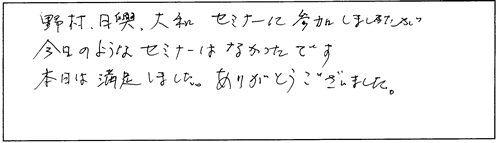 野村、日興、大和 セミナーに参加しましたが
今日のようなセミナーはなかったです
本日は満足しました。ありがとうございました。